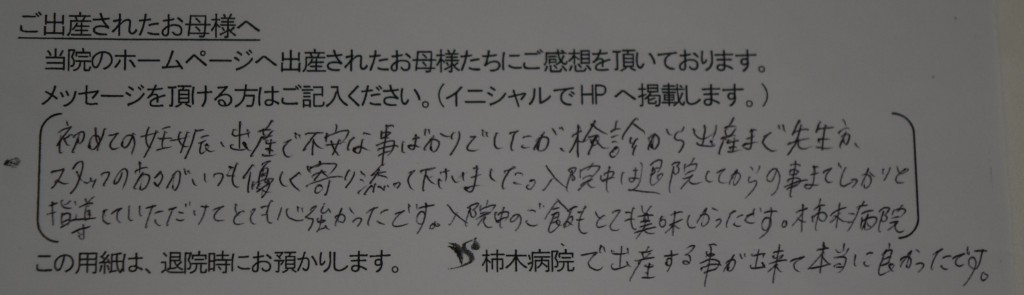 ご出産されたお母様へ
当院のホームページへ出産されたお母様たちにご感想を頂いております。
メッセージを頂ける方はご記入ください。(イニシャルでHPへ掲載します。)
初めての妊娠、出産で不安な事ばかりでしたが、検診から出産まで先生方、
スタッフの方々がいつも優しく寄り添って下さいました。入院中は退院してからの事までしっかりと
指導していただけてとても心強かったです。入院中のご飯もとても美味しかったです。柿木病院
この用紙は、退院時にお預かりします。 柿木病院で出産する事が出来て本当に良かったです。